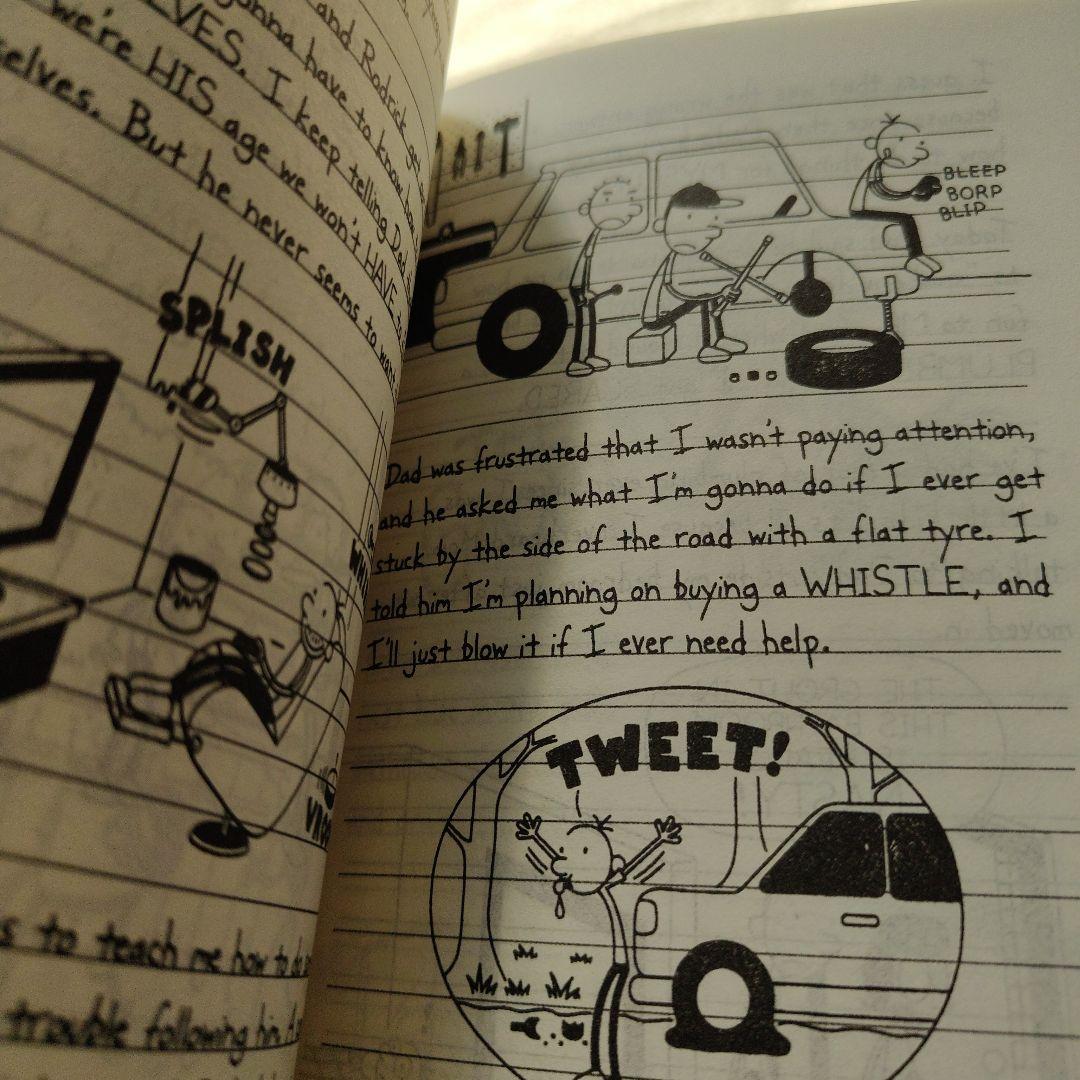 and Rodrick get
gonna have to know how
VES. I keep telling Dad
we're HIS age we won't HAVE to
selves. But he never seems to want
SPLISH
s to teach me how to do
trouble following him.
BLEEP
BORP
BLIP
Dad was frustrated that I wasn't paying attention,
and he asked me what I'm gonna do if I ever get
stuck by the side of the road with a flat tyre. I
told him I'm planning on buying a WHISTLE, and
I'll just blow it if I ever need help.
TWEET!